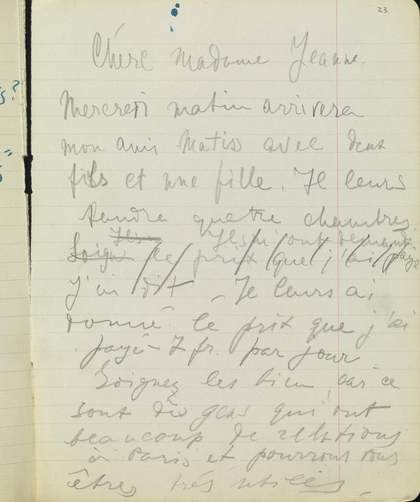 23
Chére Madame Jeanne.
Mercredi matin arrivera
mon ami Matiss avec deux
fils et une fille. Je leurs
faudra quatre chambres.
Soign le prix que j'ai payé
J'ai dit - Je leurs ai
donné le prix que j'ai
payé - 7 fr. par jour
Soignez les bien car ce
sont des gens qui ont
beaucoup de relations
à Paris et pourrons vous
êtres trés utiles.